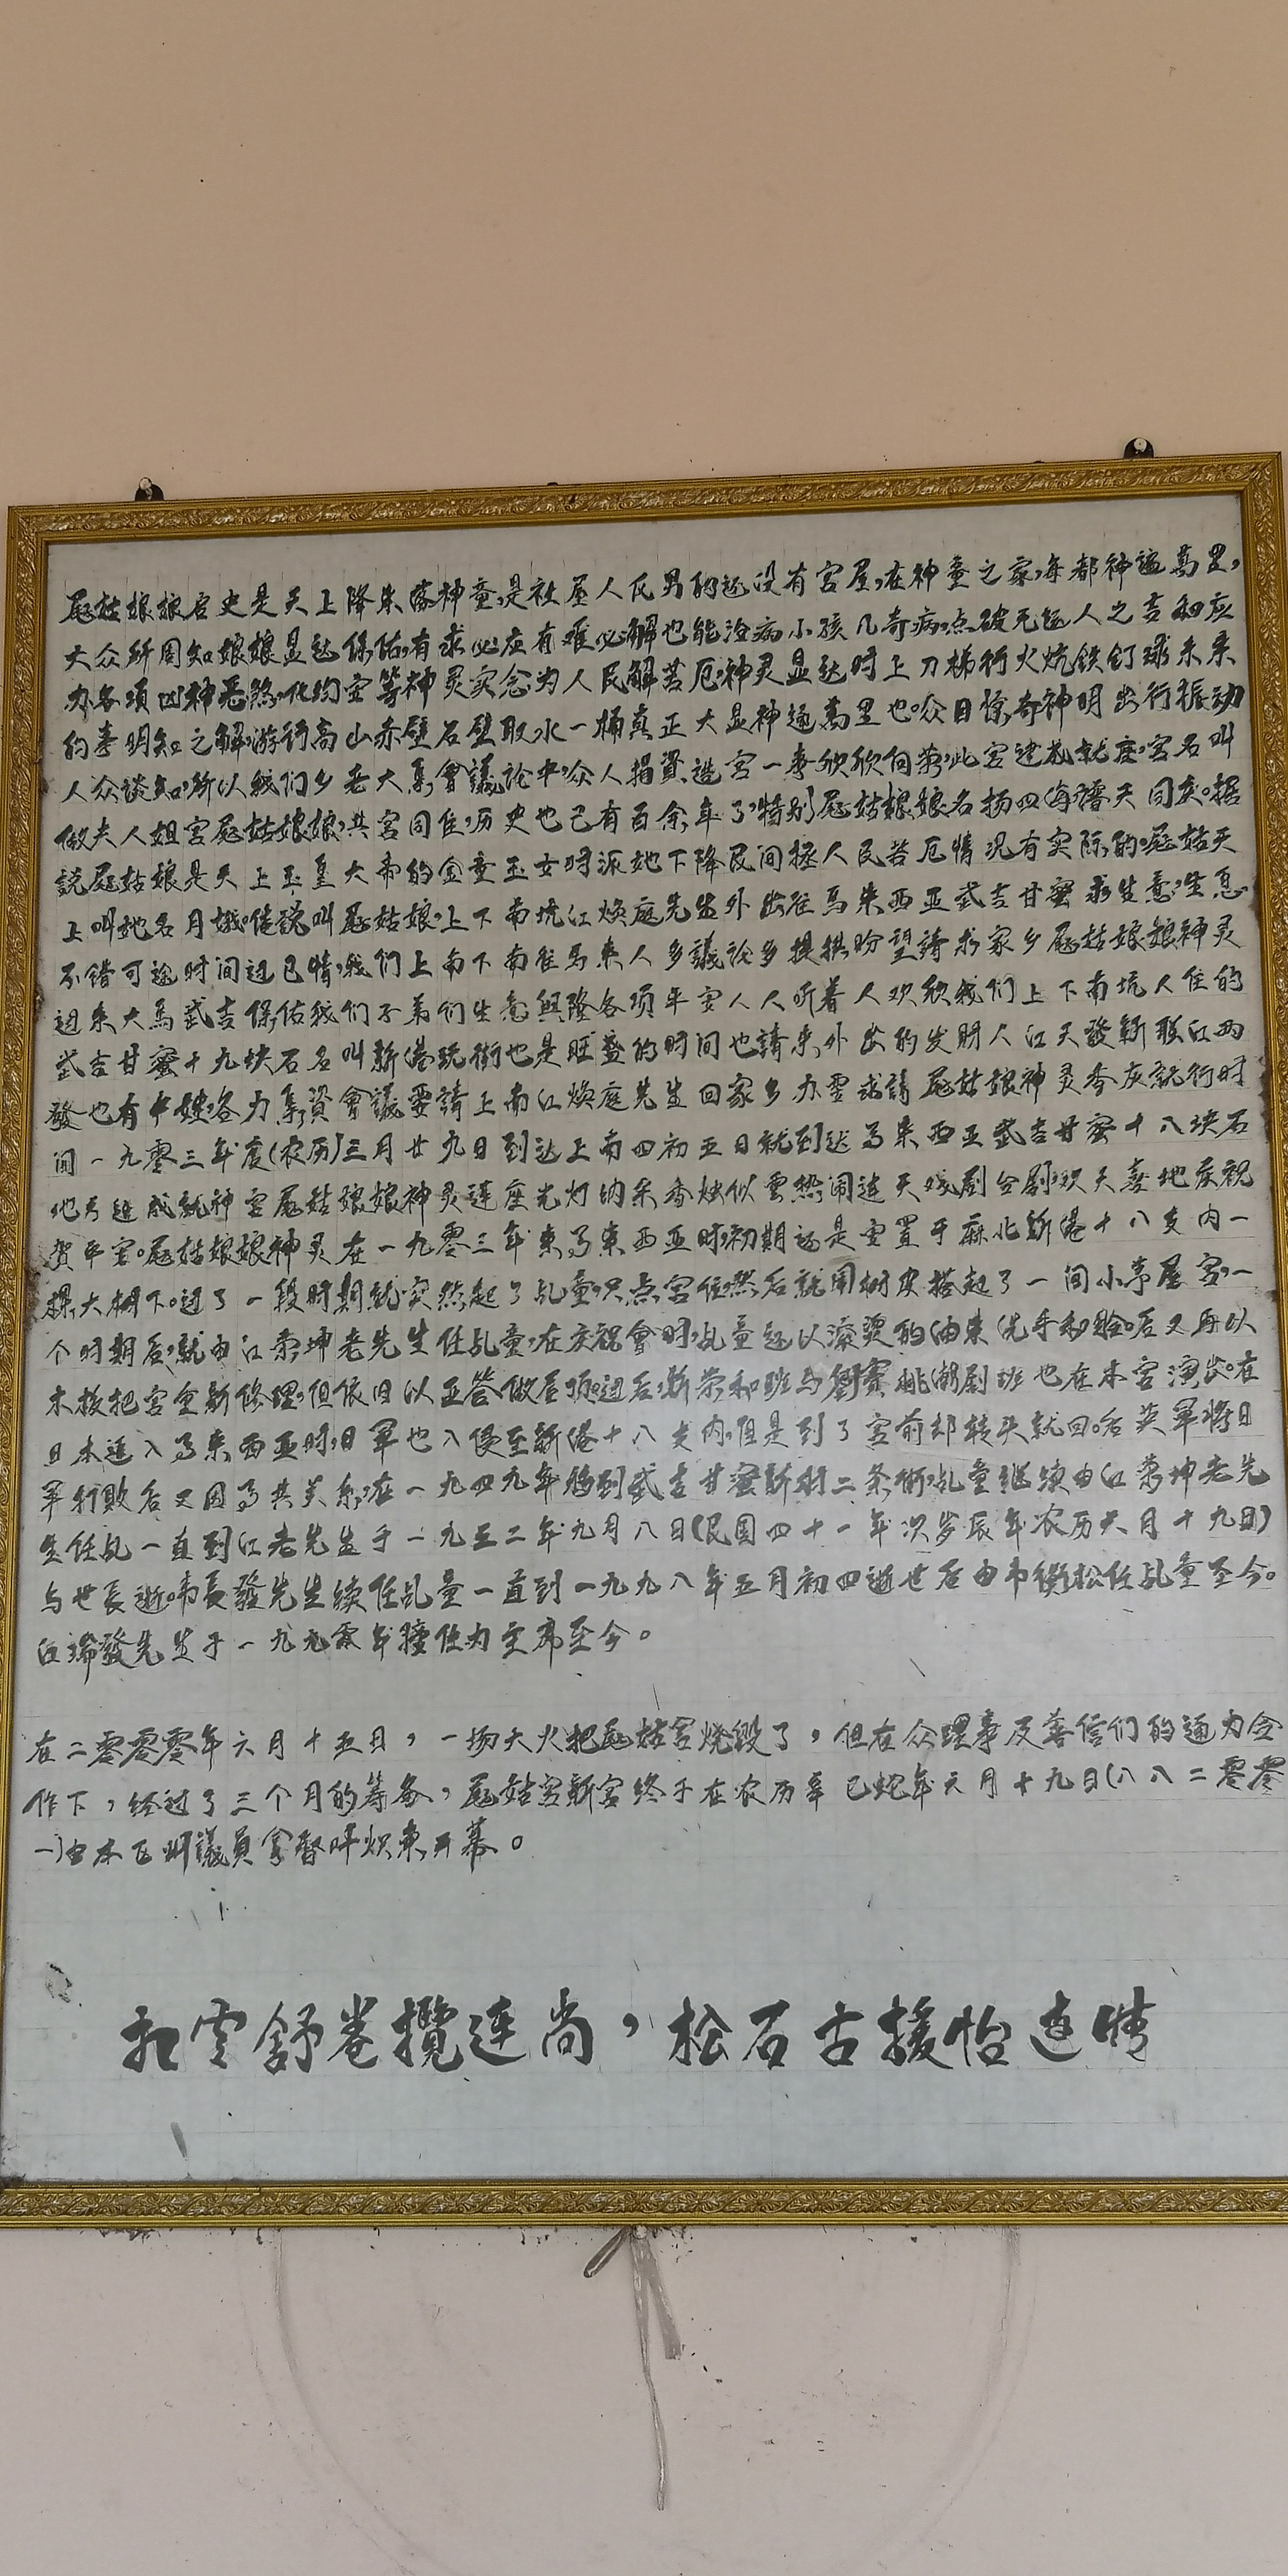 屘姑娘娘古史是天上降来落神童,是社屋人民男的还没有宫屋,在神童之家,每都神通萬里,
大众所周知娘娘显达保佑,有求必应有难必解也能治病小孩凡奇病,点破无医人之吉和应
办各項凶神恶煞,化約空等神灵实念为人民解苦厄,神灵显达时上刀梯行火炕铁钉球未来
的事明知之解,游行高山赤壁石壁取水一桶真正大显神通萬里也,众目惊奇神明出行振动
人众谈知,所以我们乡老大集會議论中,众人捐資造宫一事欣欣向荣,此宫建成就座,宫名叫
做夫人姐宫屘姑娘娘,共宫同住,历史也已有百余年了,特别屘姑娘娘名扬四海,譜天同庆。据
説屘姑娘是天上玉皇大帝的金童玉女,时派她下降民间拯人民苦厄情况有实际的,屘姑天
上叫她名月娥,俗説叫屘姑娘,上下南坑江焕庭先生外出往馬来西亚武吉甘蜜求生意,生意
不错可途时间过已情,我们上南下南往馬来人多議论多提拱盼望請求家乡屘姑娘娘神灵
过来大馬武吉保佑我们子弟们生意興隆各项平安人人听着人欢欣我们上下南坑人住的
武吉甘蜜十九块石名叫新港玩街也是旺盛的时间也請来外出的发财人江天發新联江两
發也有中雄,各力集資會議要請上南江焕庭先生回家乡办雲求請屘姑娘神灵香灰就行时
间一九零三年度(农历)三月廿九日到达上南四初五日就到达馬来西亚武吉甘蜜十八块石
地方進成就神宫屘姑娘娘神灵進座光灯纳采香烛似雲热闹連天戏剧台剧,欢天喜地庆祝
贺平安。屘姑娘娘神灵在一九零三年来馬来西亚时,初期还是安置于麻北新港十八支内一
棵大樹下。过了一段时期就突然起了乩童,只点宫位,然后就用樹皮搭起了一间小茅屋宫,一
个时期后,就由江荣坤老先生任乩童,在庆祝會时,乩童还以滚燙的油来洗手和脸。后又再以
木板把宫重新修理,但依旧以亚答做屋顶。过后,新荣和班与劉賽桃潮剧班也在本宫演出。在
日本進入馬来西亚时,日軍也入侵至新港十八支内,但是到了宫前却转头就回。后英軍将日
軍打敗后又因馬共关系,在一九四九年移到武吉甘蜜新村二条街,乩童继续由江荣坤老先
生任乩一直到江老先生于一九五二年九月八日(民国四十一年次岁辰年农历六月十九日)
与世長逝。韦長發先生续任乩童一直到一九九八年五月初四逝世后由韦衡松任乩童至今。
江瑞發先生于一九九零年接任为主席至今。
在二零零零年六月十五日,一场大火把屘姑宫燒毀了,但在众理事及善信们的通力合
作下,经过了三个月的筹备,屘姑宫新宫终于在农历辛巳蛇年六月十九日(八八二零零
一)由本区州議員拿督叶炽東开幕。
舒卷攬連尚,松石古援怡連情